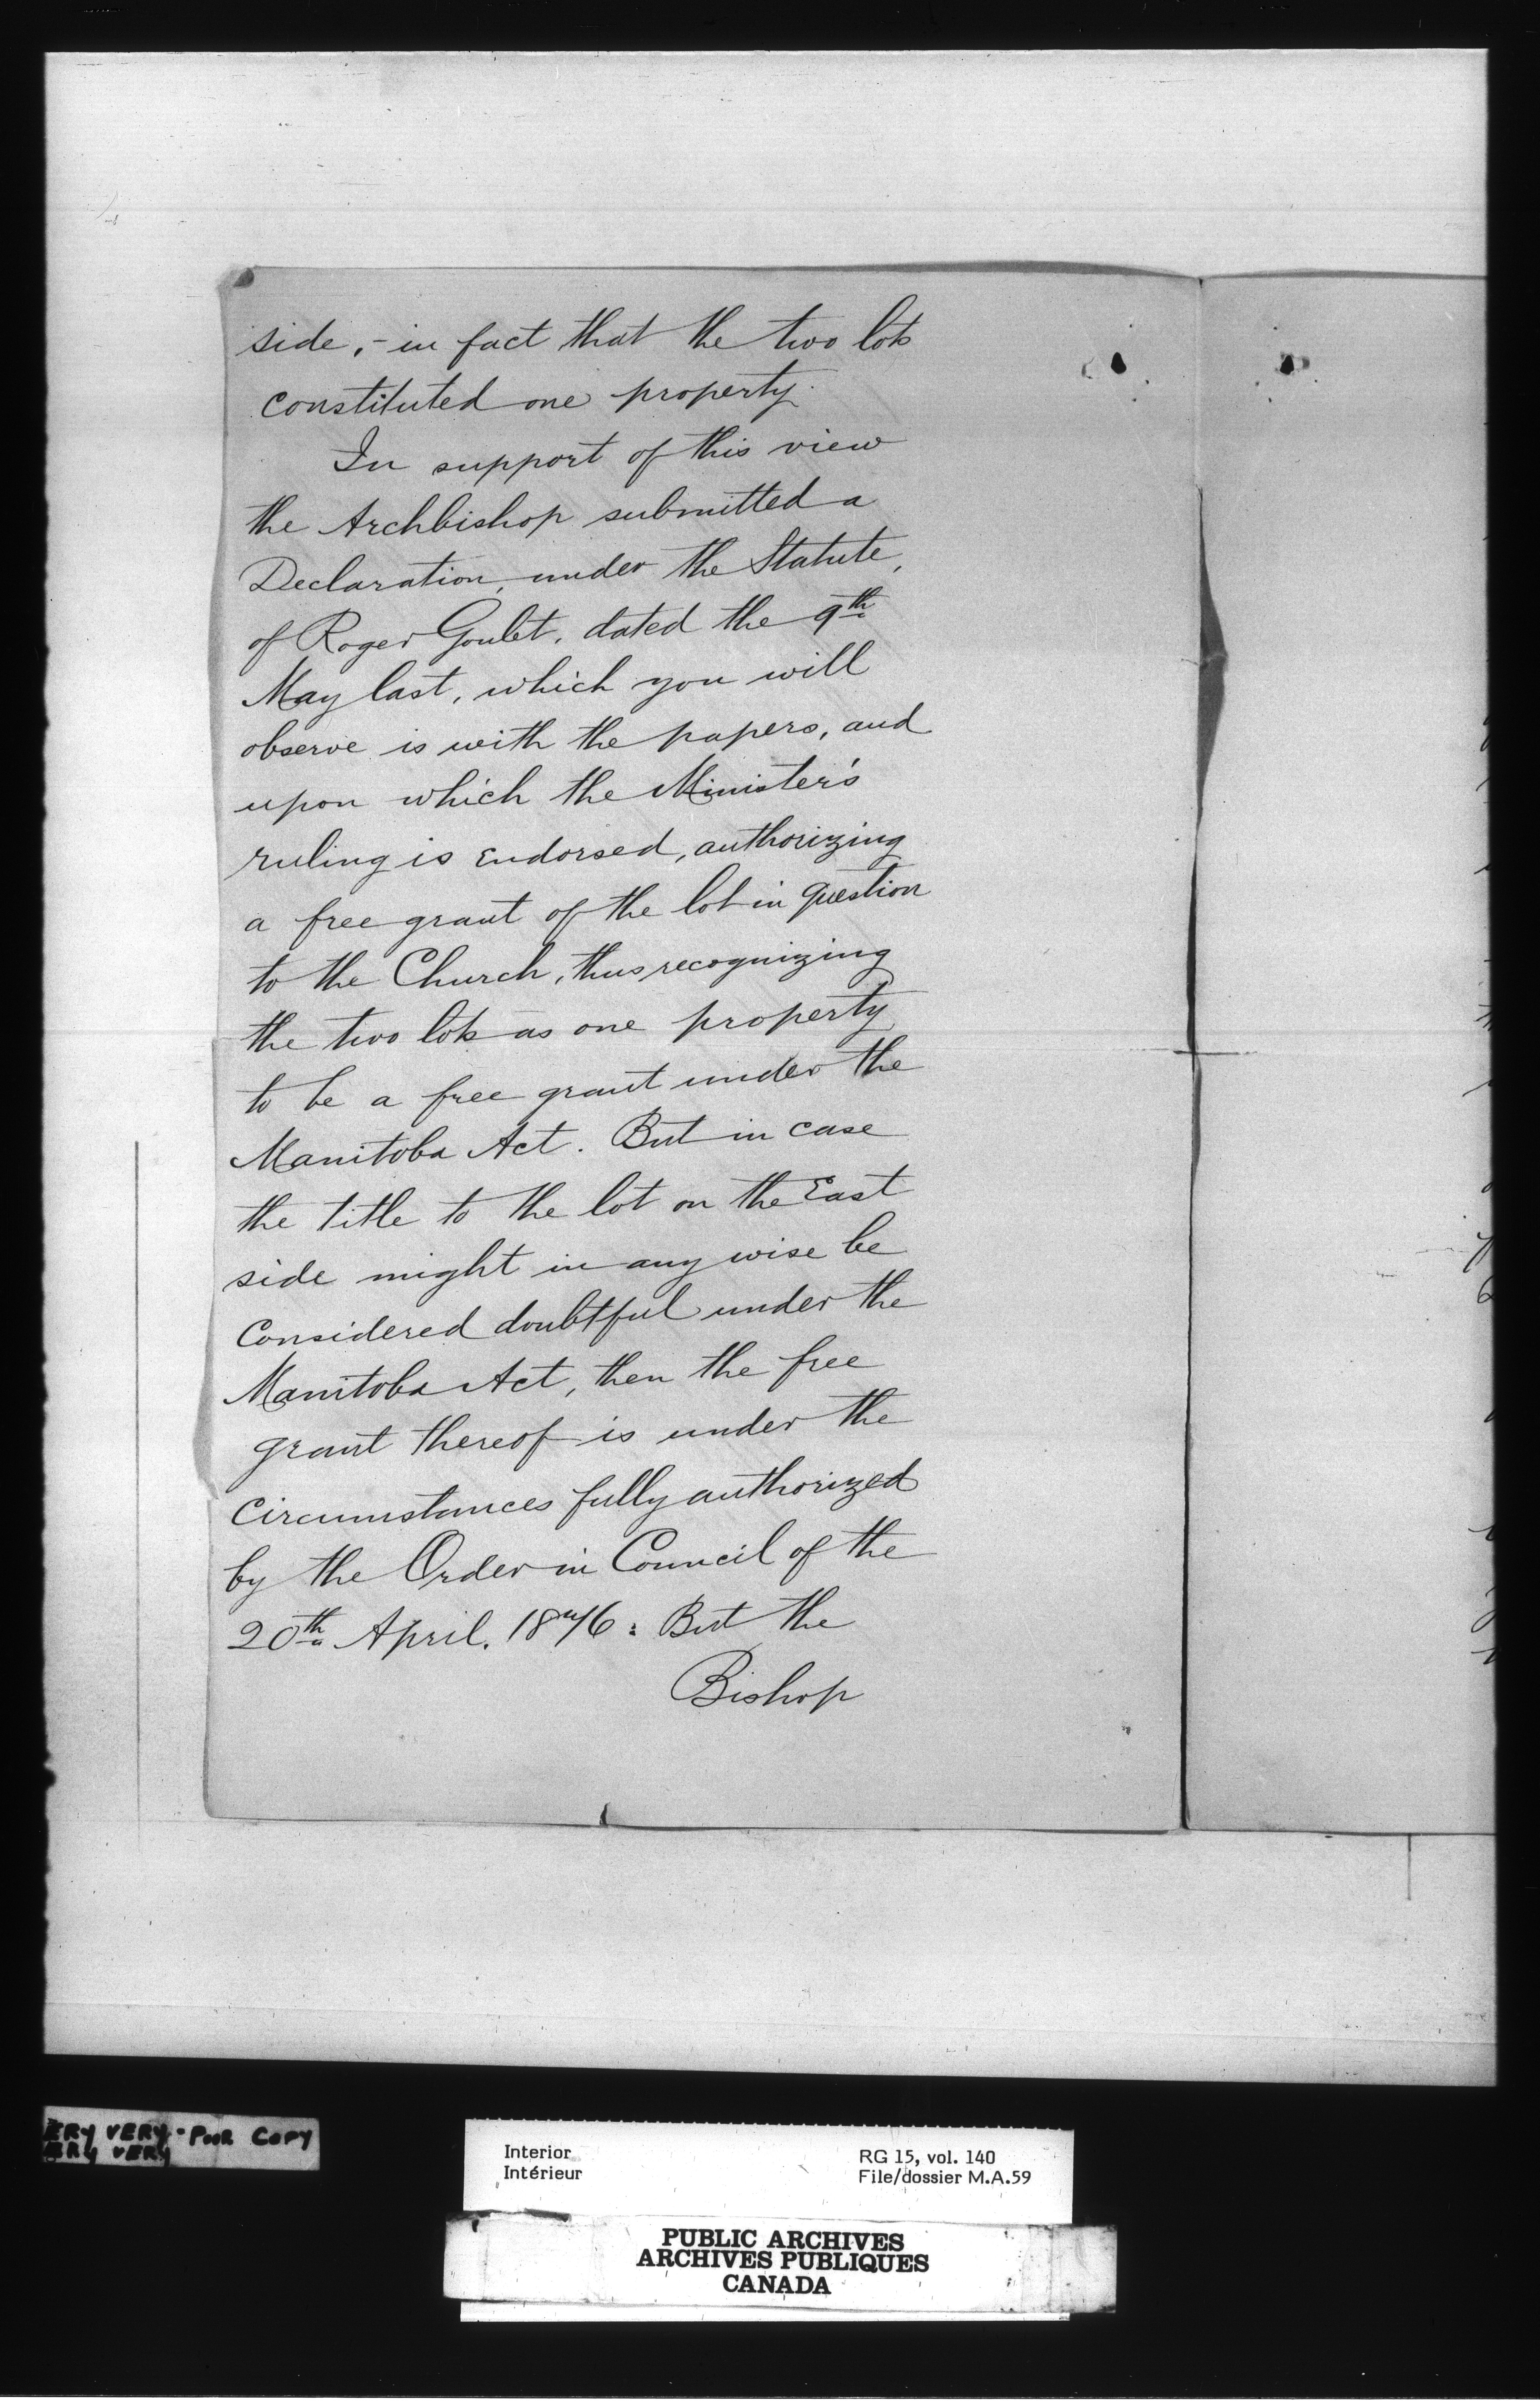 side, - in fact that the two lots
constituted one property.
In support of this view
the Archbishop submitted a
Declaration, under the Statute,
of Roger Goulet, dated the 9th
May last, which you will
observe is with the papers, and
upon which the Minister's
ruling is endorsed, authorizing
a free grant of the lot in question
to the Church, thus recognizing
the two lots as one property
to be a free grant under the
Manitoba Act. But in case
the title to the lot on the East
side might in any wise be
Considered doubtful under the
Manitoba Act, then the free
grant thereof is under the
Circumstances fully authorized
by the Order in Council of the
20th April. 1876: But the
Bishop
ERY VERY - POOR COPY
ERY VERY
Interior
Intérieur
RG 15, vol. 140
File/dossier M.A.59
PUBLIC ARCHIVES
ARCHIVES PUBLIQUES
CANADA